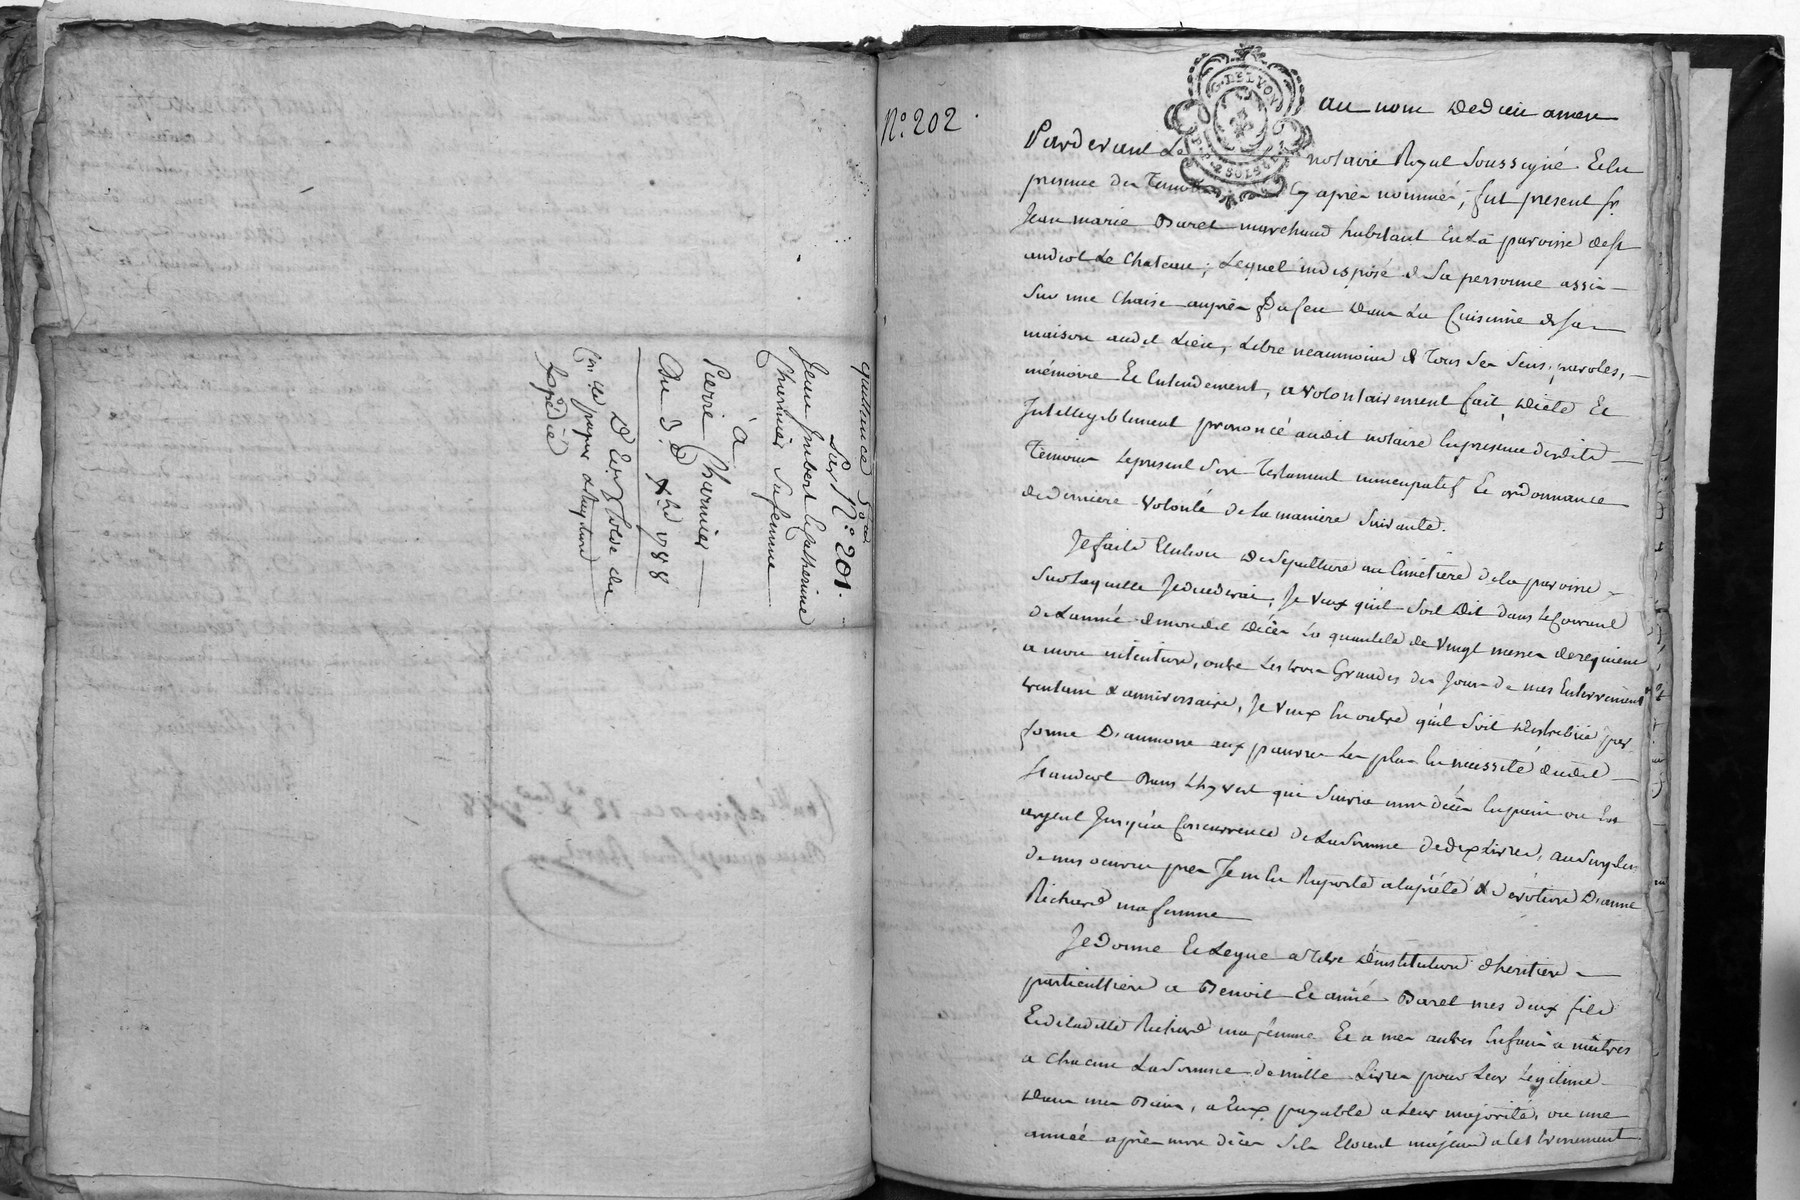 quittance pour
Sas N.º 201.
Jean Imbert & Catherinne
Charmier Sa femme
à
Pierre Charmier
Du 3.e xbre 1788
Expédié
N.º 202.
G. DE LYON
2 SOLS
au nom de Dieu amen
Pardevant Le notaire Royal Soussigné Et En
presence des Temoins Cy après nommés, fut present sr.
Jean marie Barel marchand habitant En La paroisse de st
andeol Le Chateau, Lequel indisposé de Sa personne assis
Sur une Chaise auprès du feu dans La Cuisine de sa
maison audit Lieu, Libre neanmoins de Tous Ses Sens, paroles,
mémoire Et Entendement, a volontairement fait, dicté Et
Intelligiblement prononcé audit notaire En presence desdits
Témoins Le present Son Testament nuncupatif Et ordonnance
de derniere volonté de La maniere Suivante.
Je fais Election de Sépulture au Cimetiere de la paroisse
Sur laquelle Je decederai, Je veux qu'il Soit dit dans Le Courant
de L'année de mon dit décès La quantité de vingt messes de requiem
a mon intention, outre Les trois Grandes des Jours de mes Enterrement
trentaine & anniversaire, Je veux En outre qu'il Soit distribué par
forme D'aumone aux pauvres Les plus En nécessité dudit
st andeol Dans L'hyvert que Suivra mon décès En pain ou En
argent Jusqu'a Concurrence de La Somme de dix Livres, au Surplus
de mes oeuvres pies Je m'En Raporte a la piété & devotion D'anne
Richard ma femme
Je Donne Et Legue a Titre d'institution d'heritiers
particulliers a Benoit Et aimé Barel mes deux fils
Et de ladite Richard ma femme Et a mes autres Enfans a naitres
a Chacun La Somme de mille Livres pour Leur Légitime
dans mes Biens, a Eux payable a Leur majorité, ou une
année après mon décès S'ils Etoient majeurs a Cet Evenement